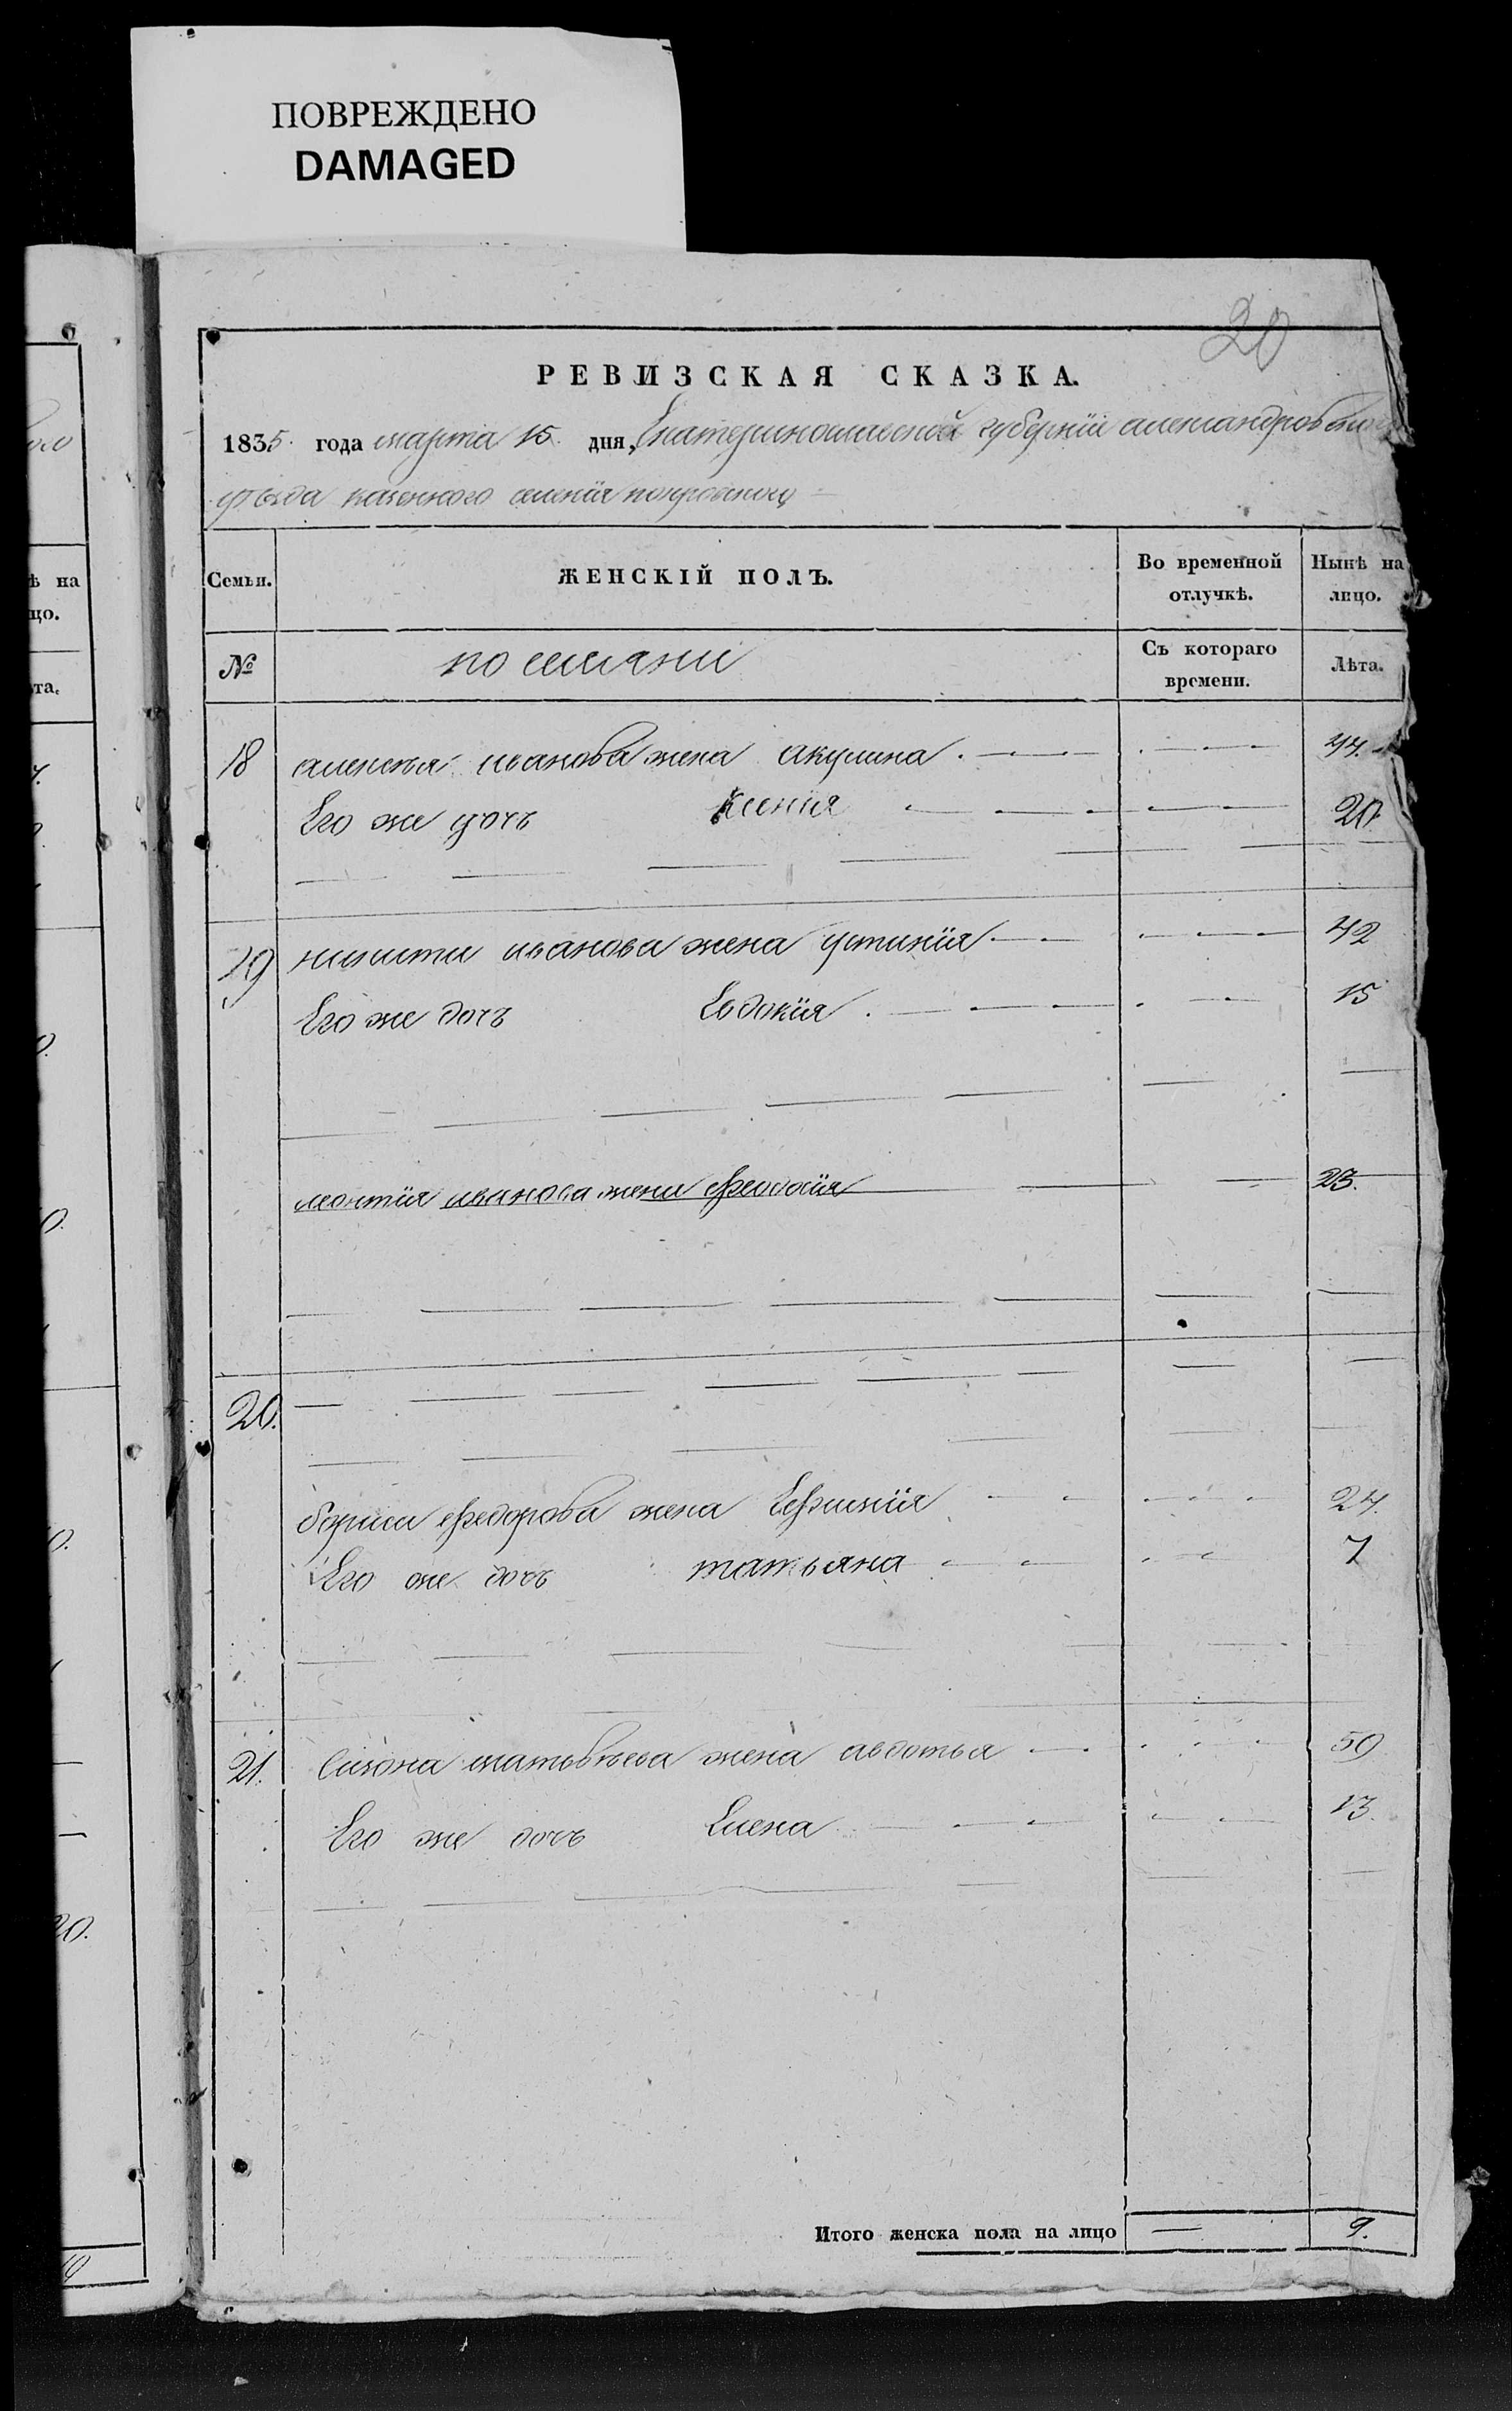 ПОВРЕЖДЕНО
DAMAGED
20
РЕВИЗСКАЯ СКАЗКА.
1835. года марта 15 дня, Екатеринославской губернїи александровского
уѣзда казенного селенїя покровского
Семьи. ЖЕНСКІЙ ПОЛЪ. Во временной отлучкѣ. Нынѣ на лицо.
№ поселяни Съ котораго времени. Лѣта.
18 алексѣя иванова жена акулина 44.
Его же дочь Ксения 20.
19 никиты иванова жена устинїя 42
Его же дочь Евдокїя 15
леонтїя иванова жена феодосїя 23.
20.
бориса федорова жена Евфимїя 24.
Его же дочь татьяна 7
21. Сизона матвѣева жена авдотья 50
Его же дочь Елена 13.
Итого женска пола на лицо — 9.
ѣ на
цо.
та.